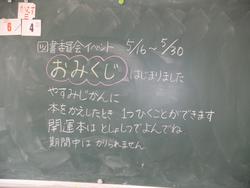 図書委員会イベント 5/16～5/30
おみくじ はじまりました
やすみじかんに
本をかえしたとき 1つひくことができます
開運本は としょしつでよんでね
期間中は かりられません
6 4